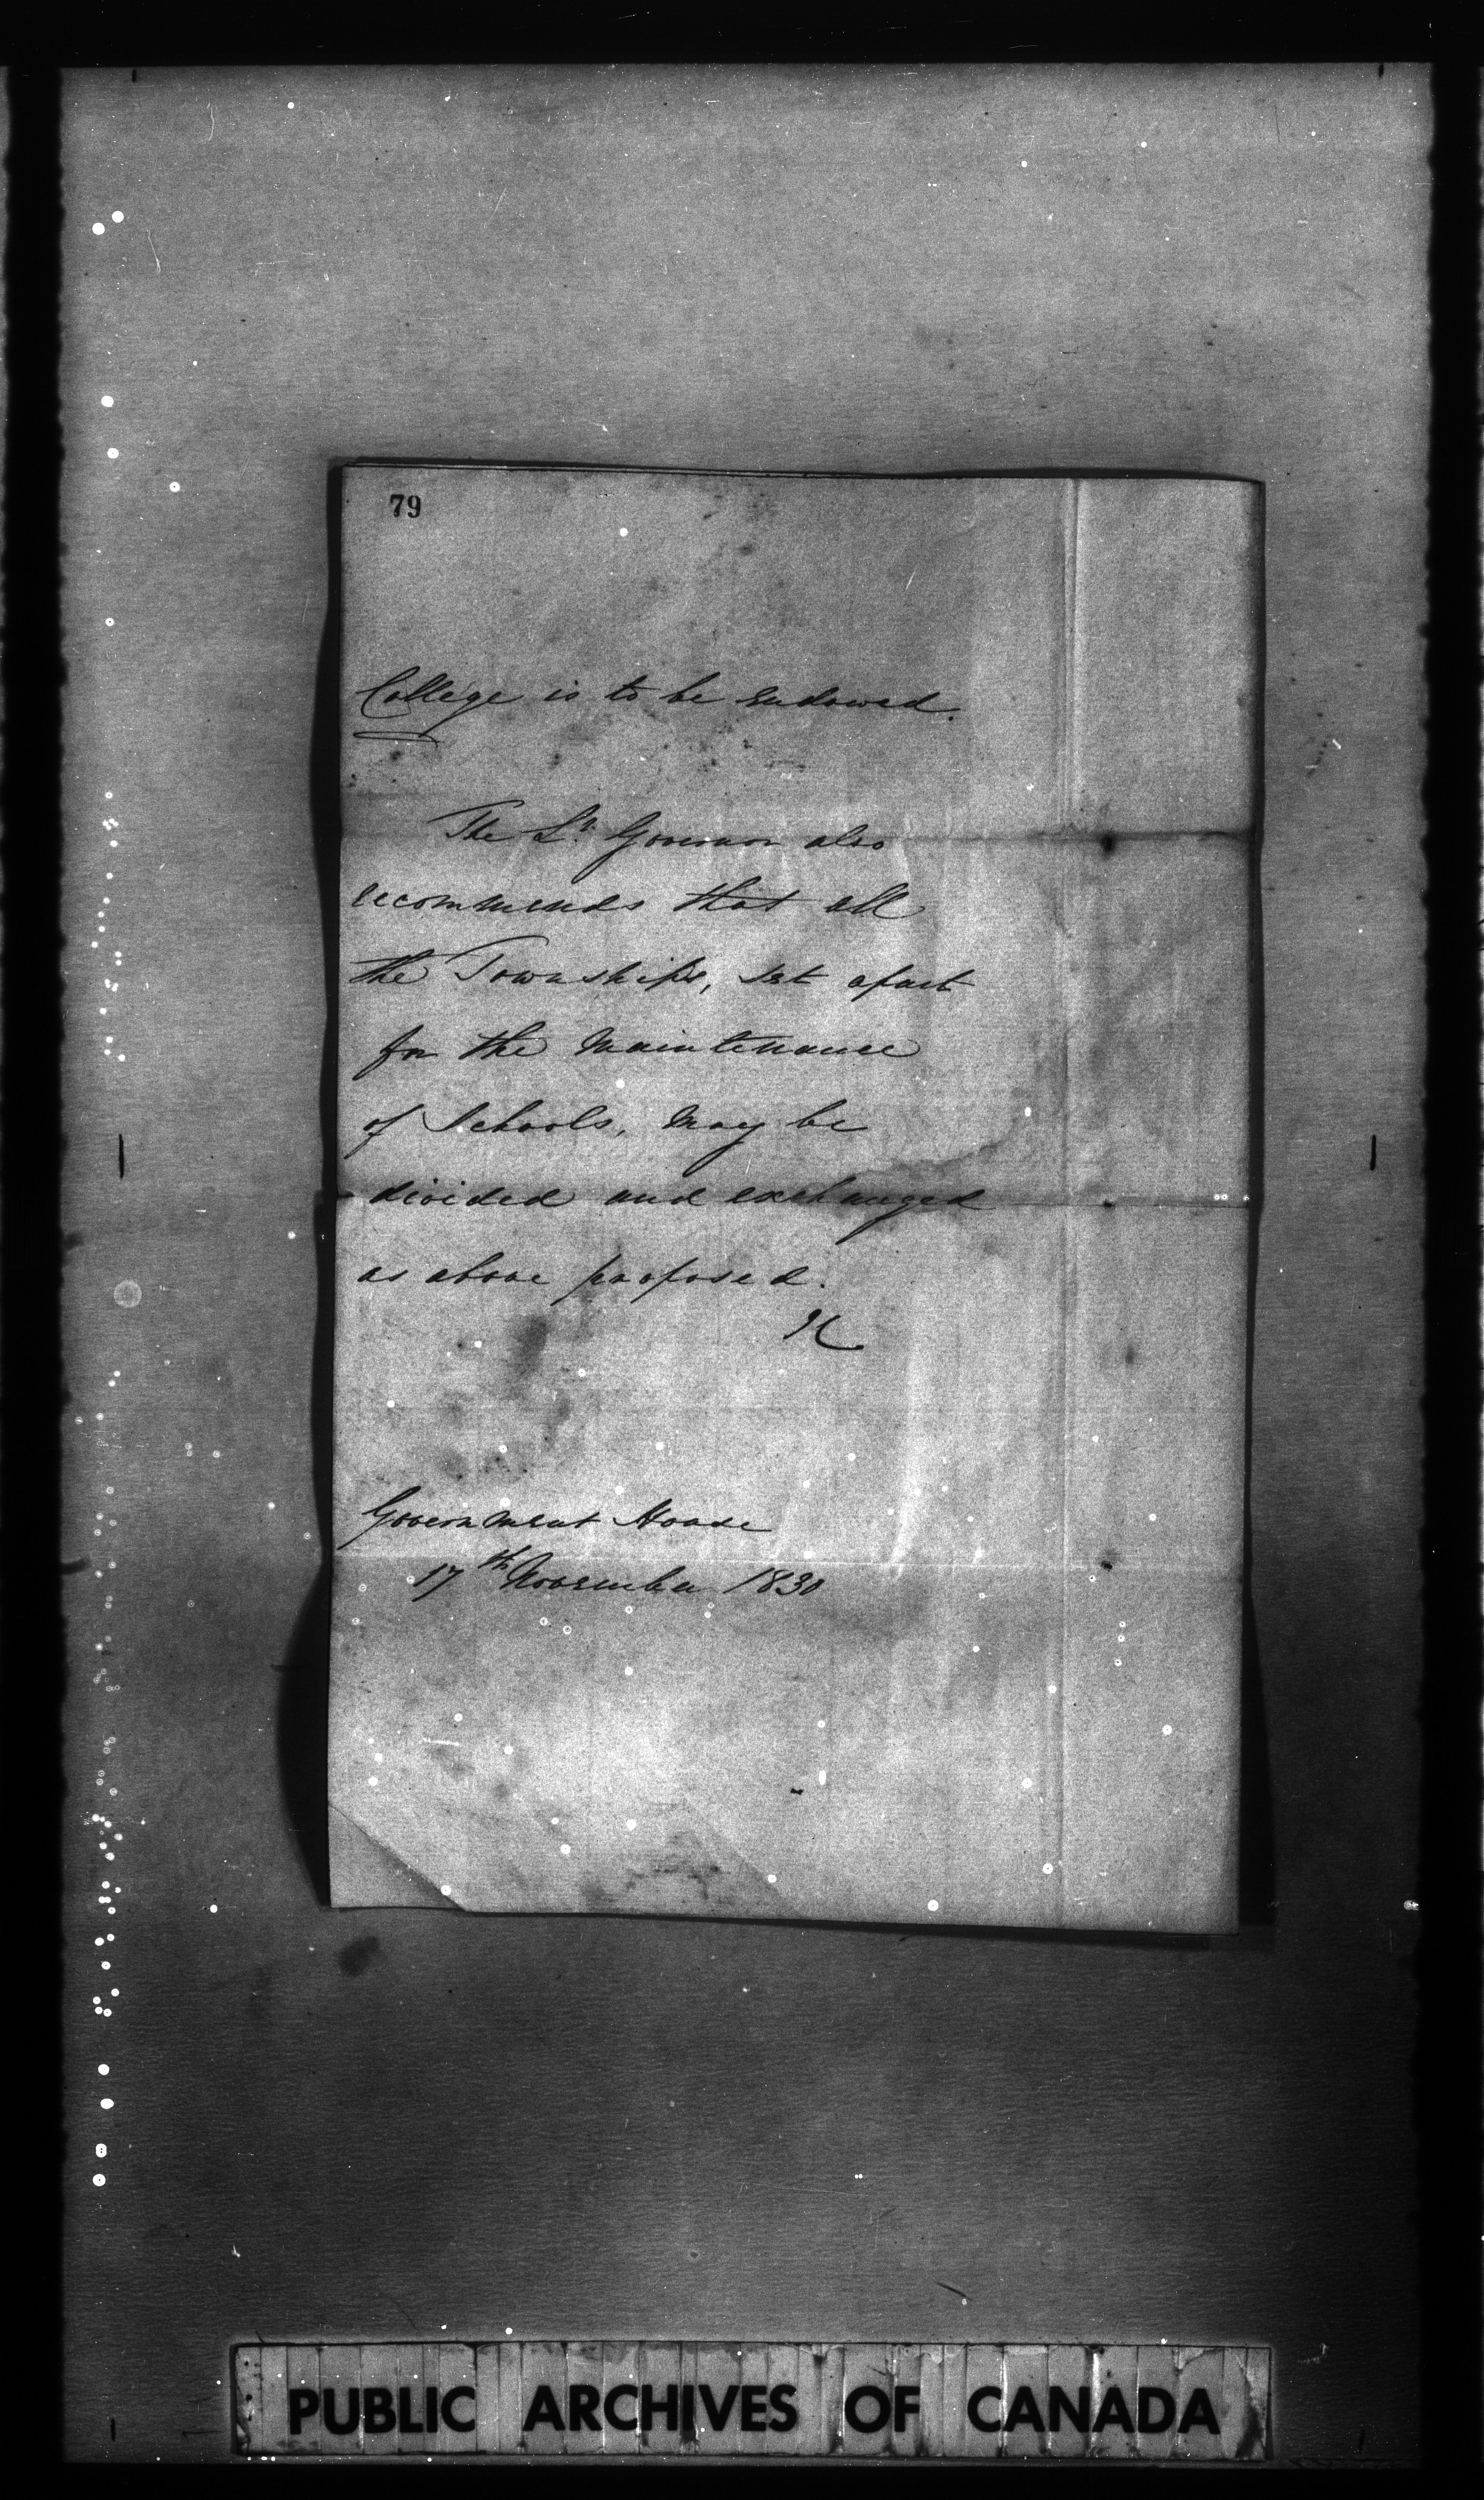 79
College is to be endowed.
The Lt. Governor also
recommends that all
the Townships, set apart
for the Maintenance
of Schools, may be
divided and exchanged
as above proposed.
Government House
17th November 1830
PUBLIC ARCHIVES OF CANADA